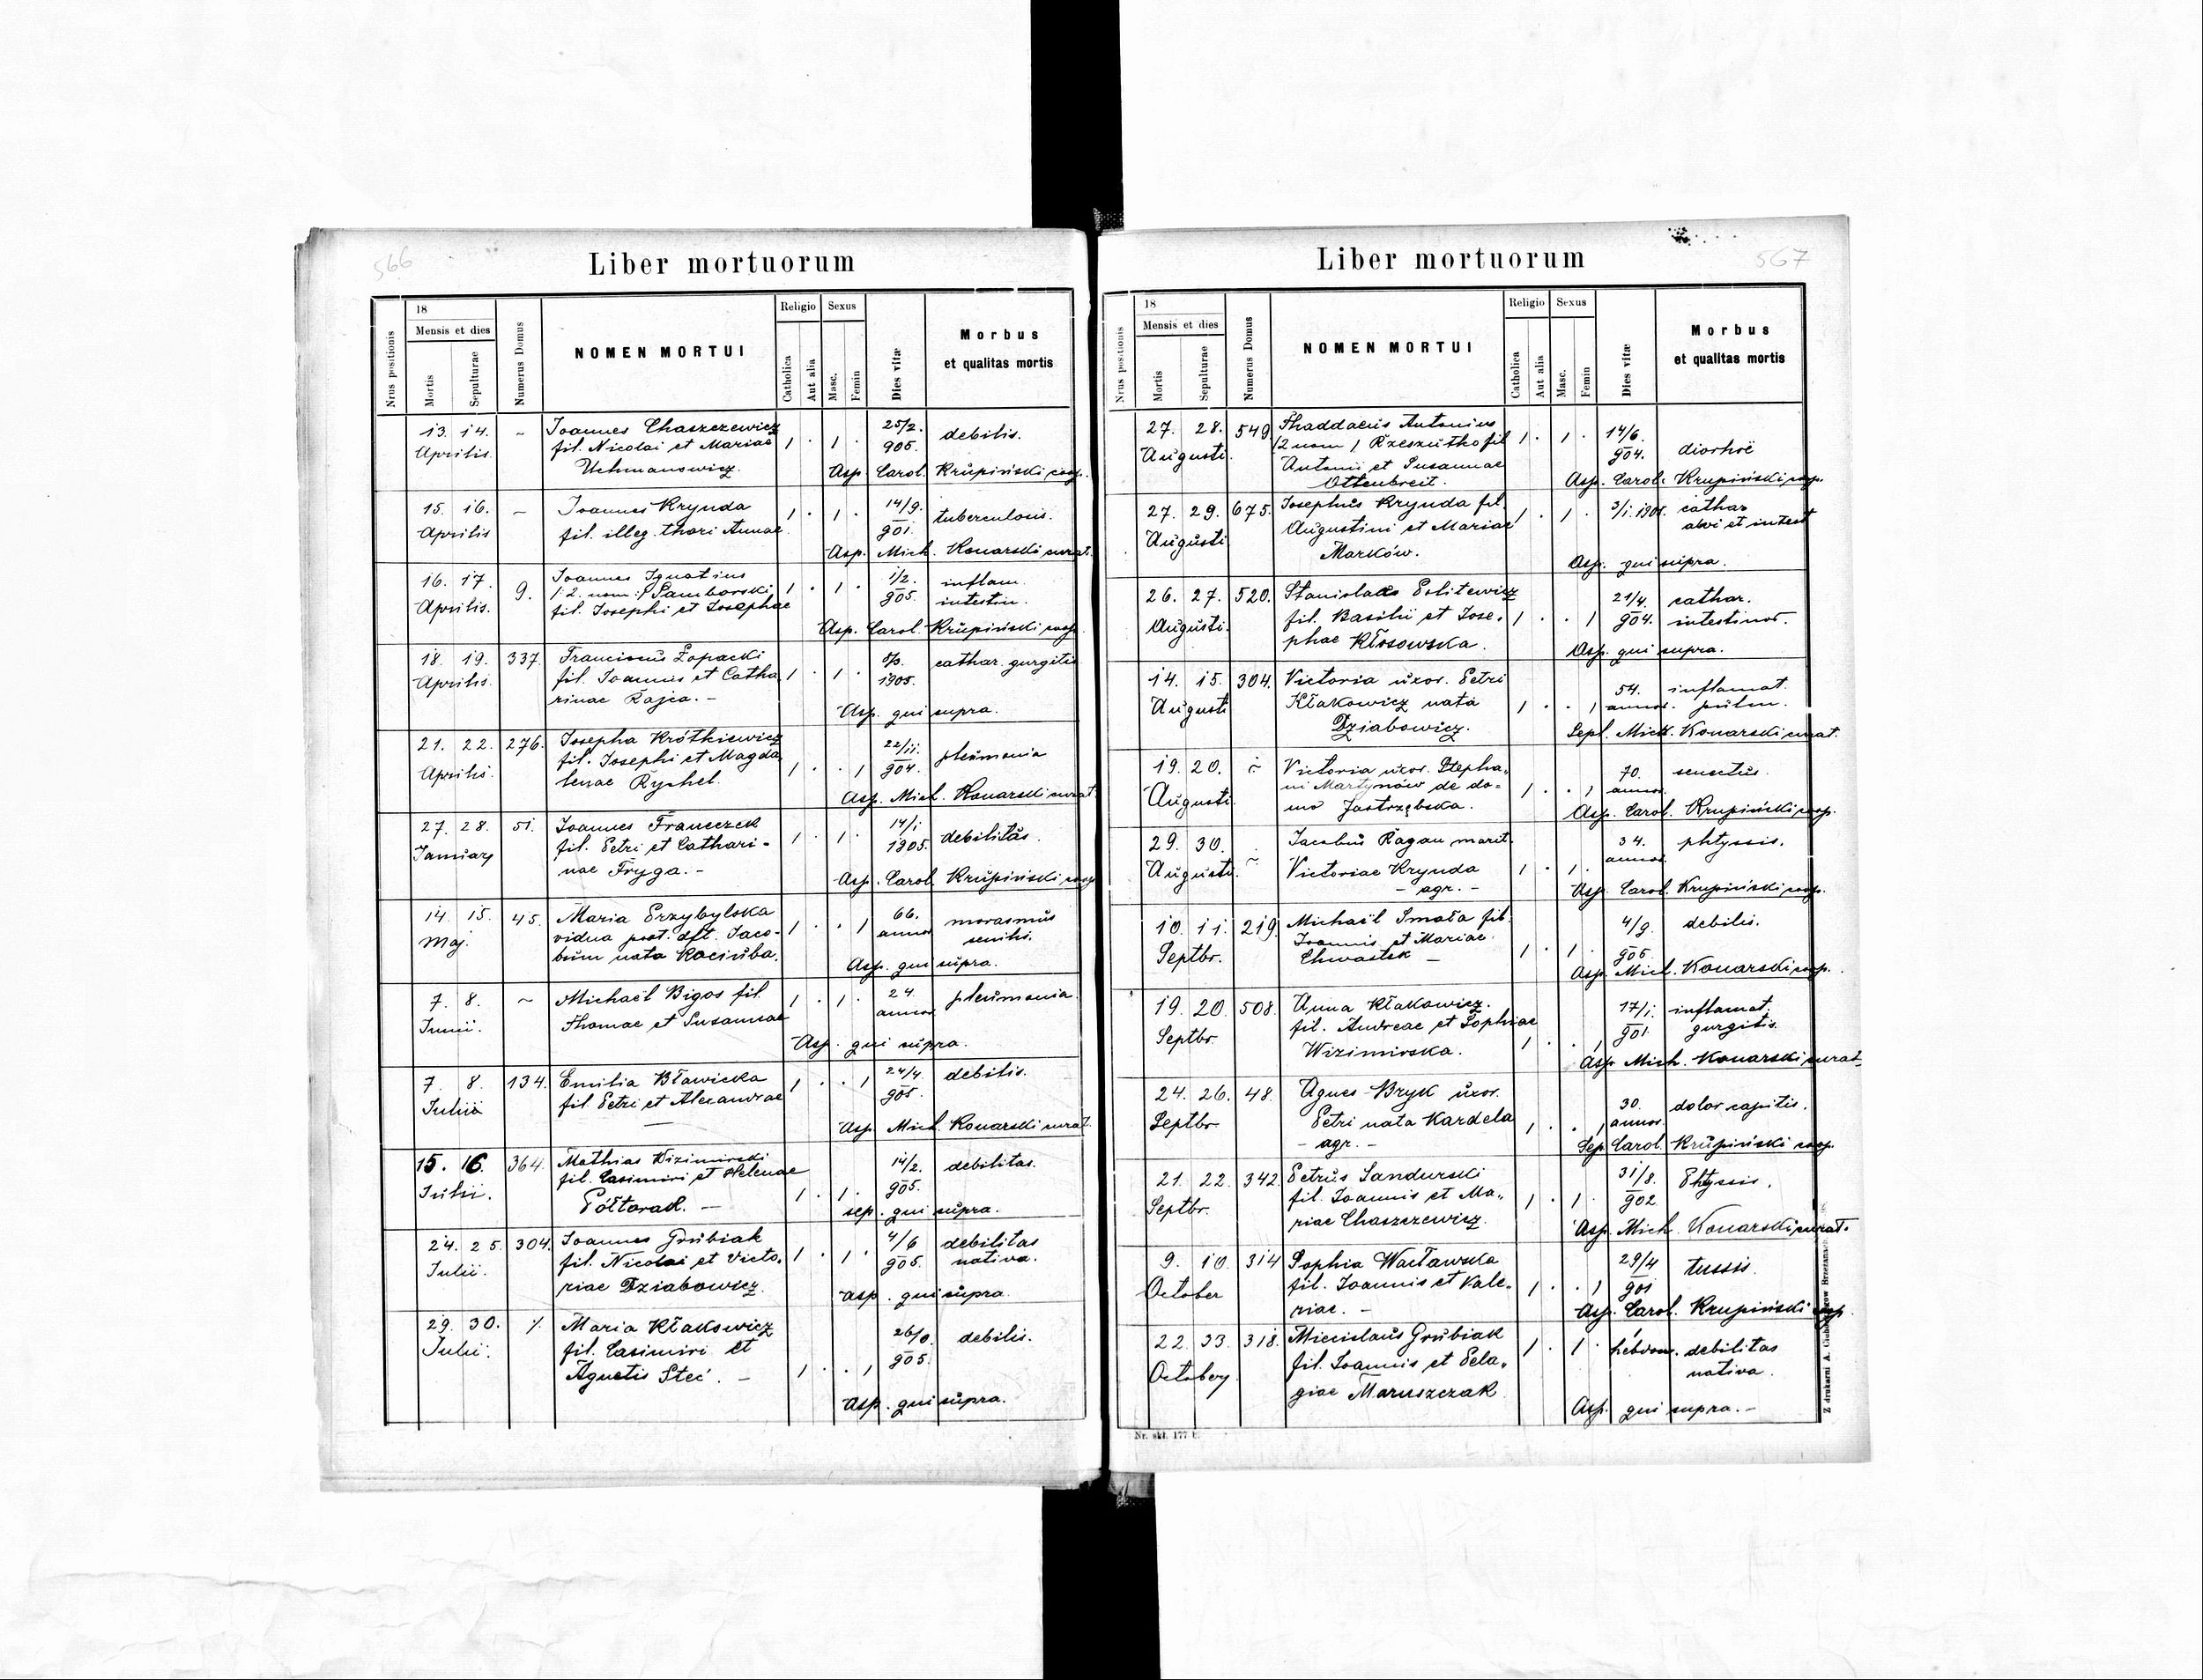 566
Liber mortuorum
Nrus positionis
18
Mensis et dies
Mortis
Sepulturae
Numerus Domus
NOMEN MORTUI
Religio
Catholica
Aut alia
Sexus
Masc.
Femin
Dies vitæ
Morbus
et qualitas mortis
13. 14. ~ Joannes Chaszczewicz 25/2.
Aprilis. fil. Nicolai et Mariae 1 · 1 · 905. debilis.
Uchmanowicz. Asp. Carol. Krupiński coop.
15. 16. ~ Joannes Krynda 14/9.
Aprilis fil. illeg. thori Annae 1 · 1 · 901. tuberculosis.
Asp. Mich. Konarski curat.
16. 17. 9. Joannes Ignatius 1/2. inflam.
Aprilis. /: 2. nom :/ Samborski 1 · 1 · 905. intestin.
fil. Josephi et Josephae
Asp. Carol. Krupiński coop.
18. 19. 337. Franciscus Łopacki cathar. gurgitis
Aprilis. fil. Joannis et Catha 1 · 1 · 1905.
rinae Rajca. -
Asp. qui supra.
21. 22. 276. Josepha Krótkiewicz 22/11.
Aprilis. fil. Josephi et Magda 904. pleumonia
lenae Rychel. 1 · · 1
Asp. Mich. Konarski curat.
27. 28. 51. Joannes Franczek 14/1
January fil. Petri et Cathari- 1 · 1 · 1905. debilitas.
nae Fryga. -
Asp. Carol. Krupiński coop.
14. 15. 45. Maria Przybylska 66. morasmus
Maj. vidua post. dft. Jaco- 1 · · 1 annor senilis.
bum nata Kociuba.
Asp. qui supra.
7. 8. ~ Michaël Bigos fil. 1 · 1 · 24. pleumonia.
Junii. Thomae et Susannae annor
Asp. qui supra.
7. 8. 134. Emilia Bławicka 1 · · 1 24/4. debilis.
Julii fil. Petri et Alexandrae 905.
Asp. Mich. Konarski curat.
15. 16. 364. Mathias Wizimirski 14/2. debilitas.
Julii. fil. Casimiri et Helenae 905.
Półtorak. - 1 · 1 ·
sep. qui supra.
24. 25. 304. Joannes Grubiak 4/6 debilitas
Julii. fil. Nicolai et Victo. 1 · 1 · 905. nativa.
riae Dziabowicz.
Asp. qui supra.
29. 30. /. Maria Kłakowicz debilis.
Julii. fil. Casimiri et 905.
Agnetis Steć. - 1 · · 1
Asp. qui supra.
567
Liber mortuorum
Nrus positionis
18
Mensis et dies
Mortis
Sepulturae
Numerus Domus
NOMEN MORTUI
Religio
Catholica
Aut alia
Sexus
Masc.
Femin
Dies vitæ
Morbus
et qualitas mortis
27. 28. 549 Thaddaeus Antonius
Augusti. /2 nom / Rzeszutko fil 1 · 1 · 14/6. 904. diorhoë
Antonii et Susannae
Ottenbreit. Asp. Carol. Krupiński coop.
27. 29. 675. Josephus Krynda fil. 3/1. 1901. cathar
Augusti Augustini et Mariae 1 · 1 · alvi et intest
Marków.
Asp. qui supra.
26. 27. 520. Stanislaus Politewicz 21/4. cathar.
Augusti. fil. Basilii et Jose. 1 · · 1 904. intestinor.
phae Kłosowska.
Asp. qui supra.
14. 15. 304. Victoria uxor. Petri 54. inflamat.
Augusti Kłakowicz nata 1 · · 1 annor. pulm.
Dziabowicz.
Sepl. Mich. Konarski curat.
19. 20. Victoria uxor. Stepha. 70. senectus.
Augusti. ni Martynów de do- 1 · · 1 annor.
mo Jastrzębska.
Asp. Carol. Krupiński coop.
29. 30. ~ Jacobus Ragan marit. 34. phtyssis.
Augusti. Victoriae Krynda 1 · 1 · annor.
- agr. -
Asp. Carol. Krupiński coop.
10. 11. 219. Michaël Smoła fil. 4/9. debilis.
Septbr. Joannis et Mariae 1 · 1 · 905.
Chwastek -
Asp. Mich. Konarski coop.
19. 20. 508. Anna Kłakowicz. 17/1. inflamat.
Septbr fil. Andreae et Sophiae 901. gurgitis.
Wizimirska. 1 · · 1
Asp. Mich. Konarski curat
24. 26. 48. Agnes Bryk uxor. 30. dolor capitis.
Septbr Petri nata Kardela 1 · · 1 annor.
- agr. -
Sep. Carol. Krupiński coop.
21. 22. 342. Petrus Sandurski 31/8. Phtyssis.
Septbr. fil. Joannis et Ma.. 1 · 1 · 902
riae Chaszczewicz.
Asp. Mich. Konarski curat.
9. 10. 314 Sophia Wacławska 29/4 tussis.
October fil. Joannis et Vale. 1 · · 1 901
riae. -
Asp. Carol. Krupiński coop.
22. 23. 318. Miecislaus Grubiak 1 · 1 · hebdom. debilitas
October fil. Joannis et Pela. nativa.
giae Maruszczak
Asp. qui supra. -
Nr. skł. 177
Z drukarni A.